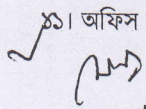 ১১। অফিস